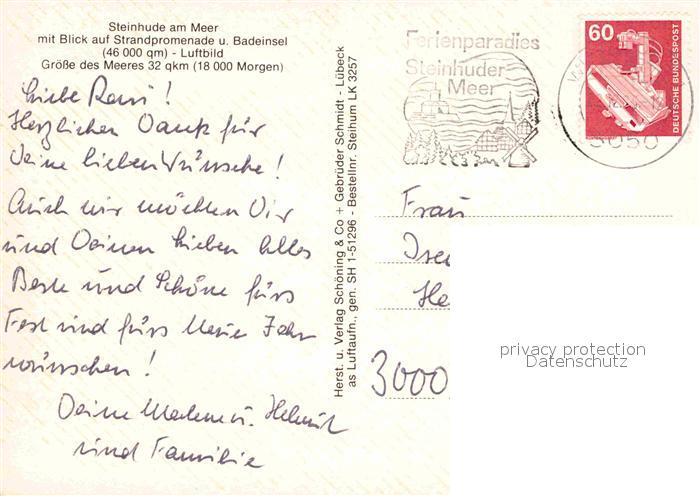 Steinhude am Meer
mit Blick auf Strandpromenade u. Badeinsel
(46 000 qm) - Luftbild
Größe des Meeres 32 qkm (18 000 Morgen)
Liebe
Herzlichen Dank für
Deine lieben Wünsche!
Auch wir möchten Dir
und Deinen Lieben Alles
Beste und Schöne fürs
Fest und fürs Neue Jahr
wünschen!
Deine u. Helmut
und Familie
Herst. u. Verlag Schöning & Co + Gebrüder Schmidt - Lübeck
as Luftaufn., gen. SH 1-51296 - Bestellnr. Steihum LK 3257
Ferienparadies
Steinhuder
Meer
60
DEUTSCHE BUNDESPOST
3050
Frau
3000
privacy protection
Datenschutz